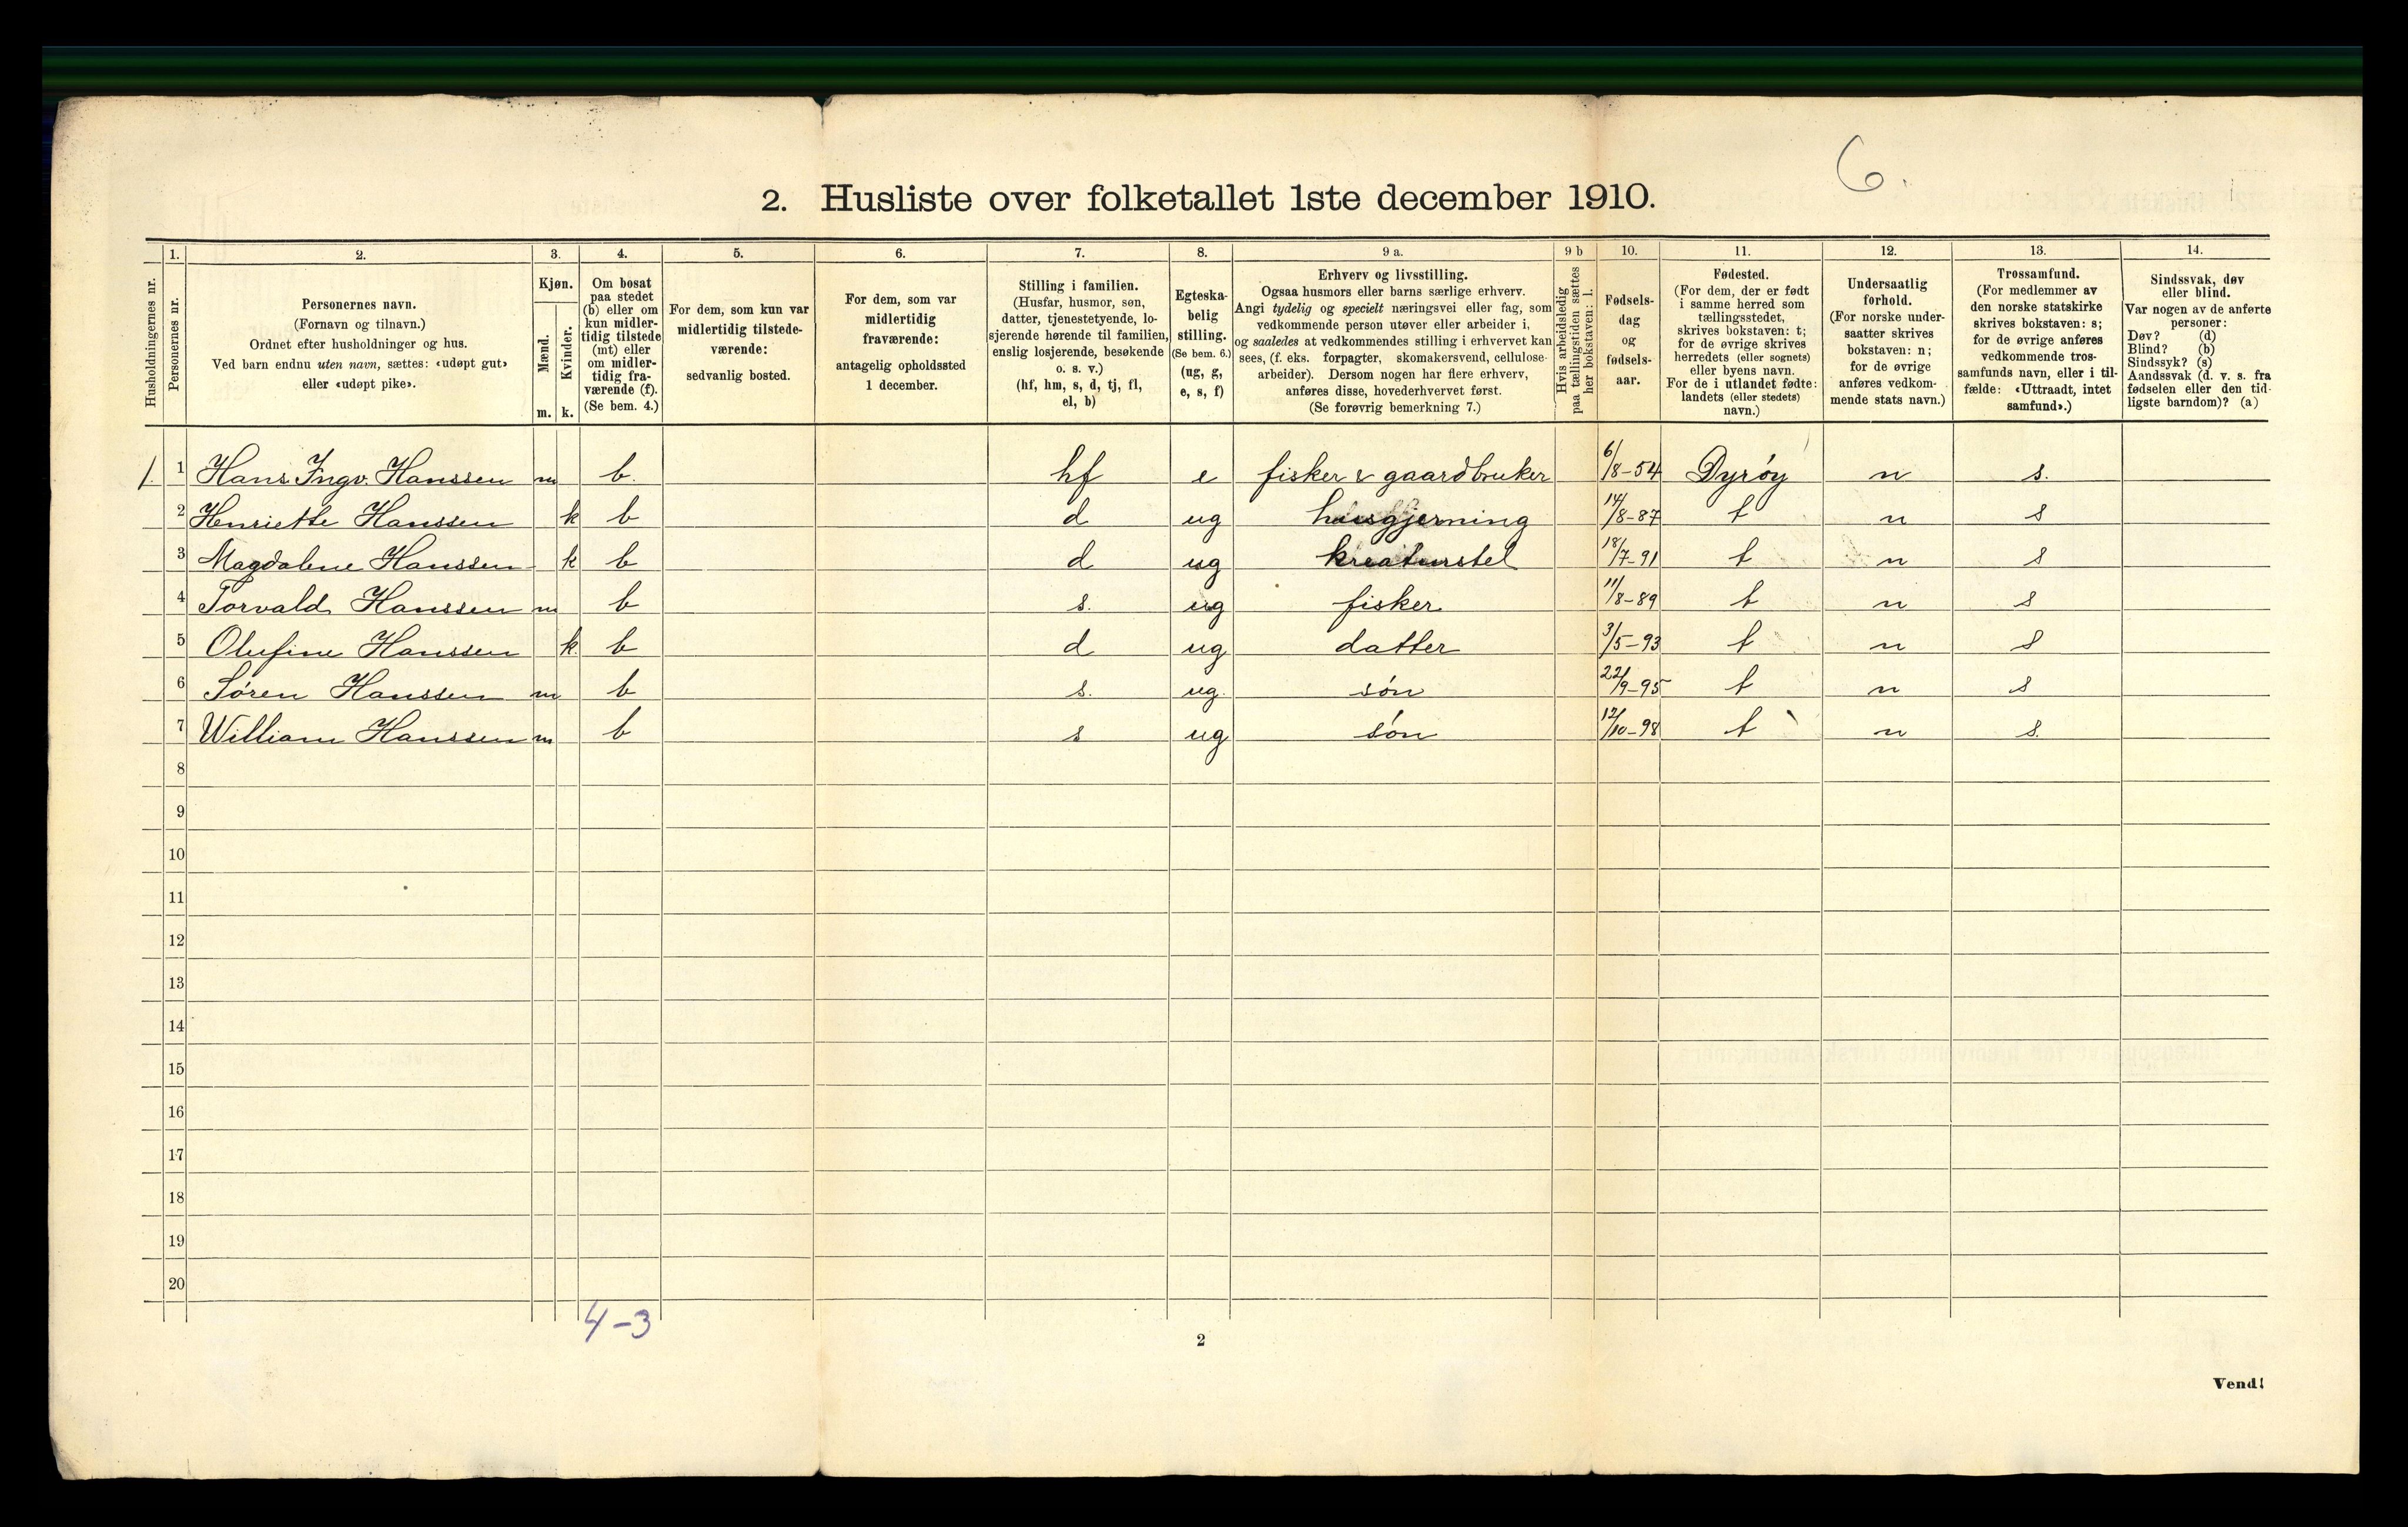 6.
2. Husliste over folketallet 1ste december 1910.
Husholdningernes nr.
1. Personernes nr.
2. Personernes navn. (Fornavn og tilnavn.) Ordnet efter husholdninger og hus. Ved barn endnu uten navn, sættes: «udøpt gut» eller «udøpt pike».
3. Kjøn. Mænd. m. Kvinder. k.
4. Om bosat paa stedet (b) eller om kun midler-tidig tilstede (mt) eller om midler-tidig fra-værende (f). (Se bem. 4.)
5. For dem, som kun var midlertidig tilstede-værende: sedvanlig bosted.
6. For dem, som var midlertidig fraværende: antagelig opholdssted 1 december.
7. Stilling i familien. (Husfar, husmor, søn, datter, tjenestetyende, lo-sjerende hørende til familien, enslig losjerende, besøkende o. s. v.) (hf, hm, s, d, tj, fl, el, b)
8. Egteska-belig stilling. (Se bem. 6.) (ug, g, e, s, f)
9 a. Erhverv og livsstilling. Ogsaa husmors eller barns særlige erhverv. Angi tydelig og specielt næringsvei eller fag, som vedkommende person utøver eller arbeider i, og saaledes at vedkommendes stilling i erhvervet kan sees, (f. eks. forpagter, skomakersvend, cellulose-arbeider). Dersom nogen har flere erhverv, anføres disse, hovederhvervet først. (Se forøvrig bemerkning 7.)
9 b Hvis arbeidsledig paa tællingstiden sættes her bokstaven: l.
10. Fødsels-dag og fødsels-aar.
11. Fødested. (For dem, der er født i samme herred som tællingsstedet, skrives bokstaven: t; for de øvrige skrives herredets (eller sognets) eller byens navn. For de i utlandet fødte: landets (eller stedets) navn.)
12. Undersaatlig forhold. (For norske under-saatter skrives bokstaven: n; for de øvrige anføres vedkom-mende stats navn.)
13. Trossamfund. (For medlemmer av den norske statskirke skrives bokstaven: s; for de øvrige anføres vedkommende tros-samfunds navn, eller i til-fælde: «Uttraadt, intet samfund».)
14. Sindssvak, døv eller blind. Var nogen av de anførte personer: Døv? (d) Blind? (b) Sindssyk? (s) Aandssvak (d. v. s. fra fødselen eller den tid-ligste barndom)? (a)
1. 1 Hans Ingv. Hanssen m b. hf e fisker & gaardbruker 6/8-54 Dyrøy n s.
2 Henriette Hanssen k b d ug husgjerning 14/8-87 t n s
3 Magdalene Hanssen k b d ug kreaturstel 18/7-91 t n s
4 Torvald Hanssen m b s. ug fisker 11/8-89 t n s
5 Olufine Hanssen k. b d ug datter 3/5-93 t n s
6 Søren Hanssen m b s. ug. søn 22/9-95 t n s
7 William Hanssen m b s ug søn 12/10-98 t n s.
8
9
10
11
12
13
14
15
16
17
18
19
20
4-3
2
Vend!